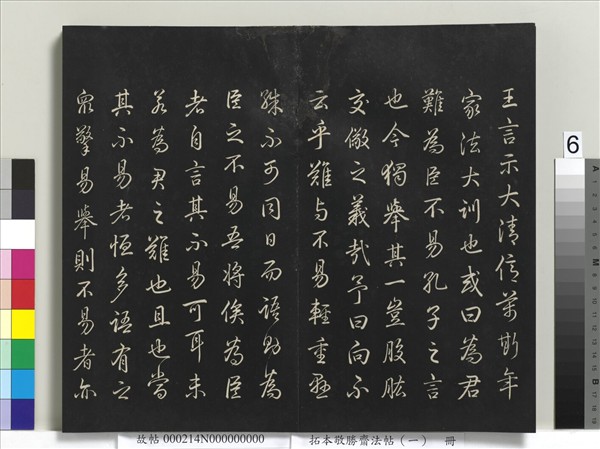 王言示大清億萬斯年
家法大训也或曰為君
難為臣不易孔子之言
也今獨舉其一豈股肱
交儆之義哉予曰向不
云乎難与不易輕重懸
殊不可同日而語即為
臣之不易吾將俟為臣
者自言其不易可耳未
若為君之難也且也當
其不易者恒多語有之
眾擎易舉則不易者亦
6
故帖 000214N000000000 拓本敬勝齋法帖(一) 冊